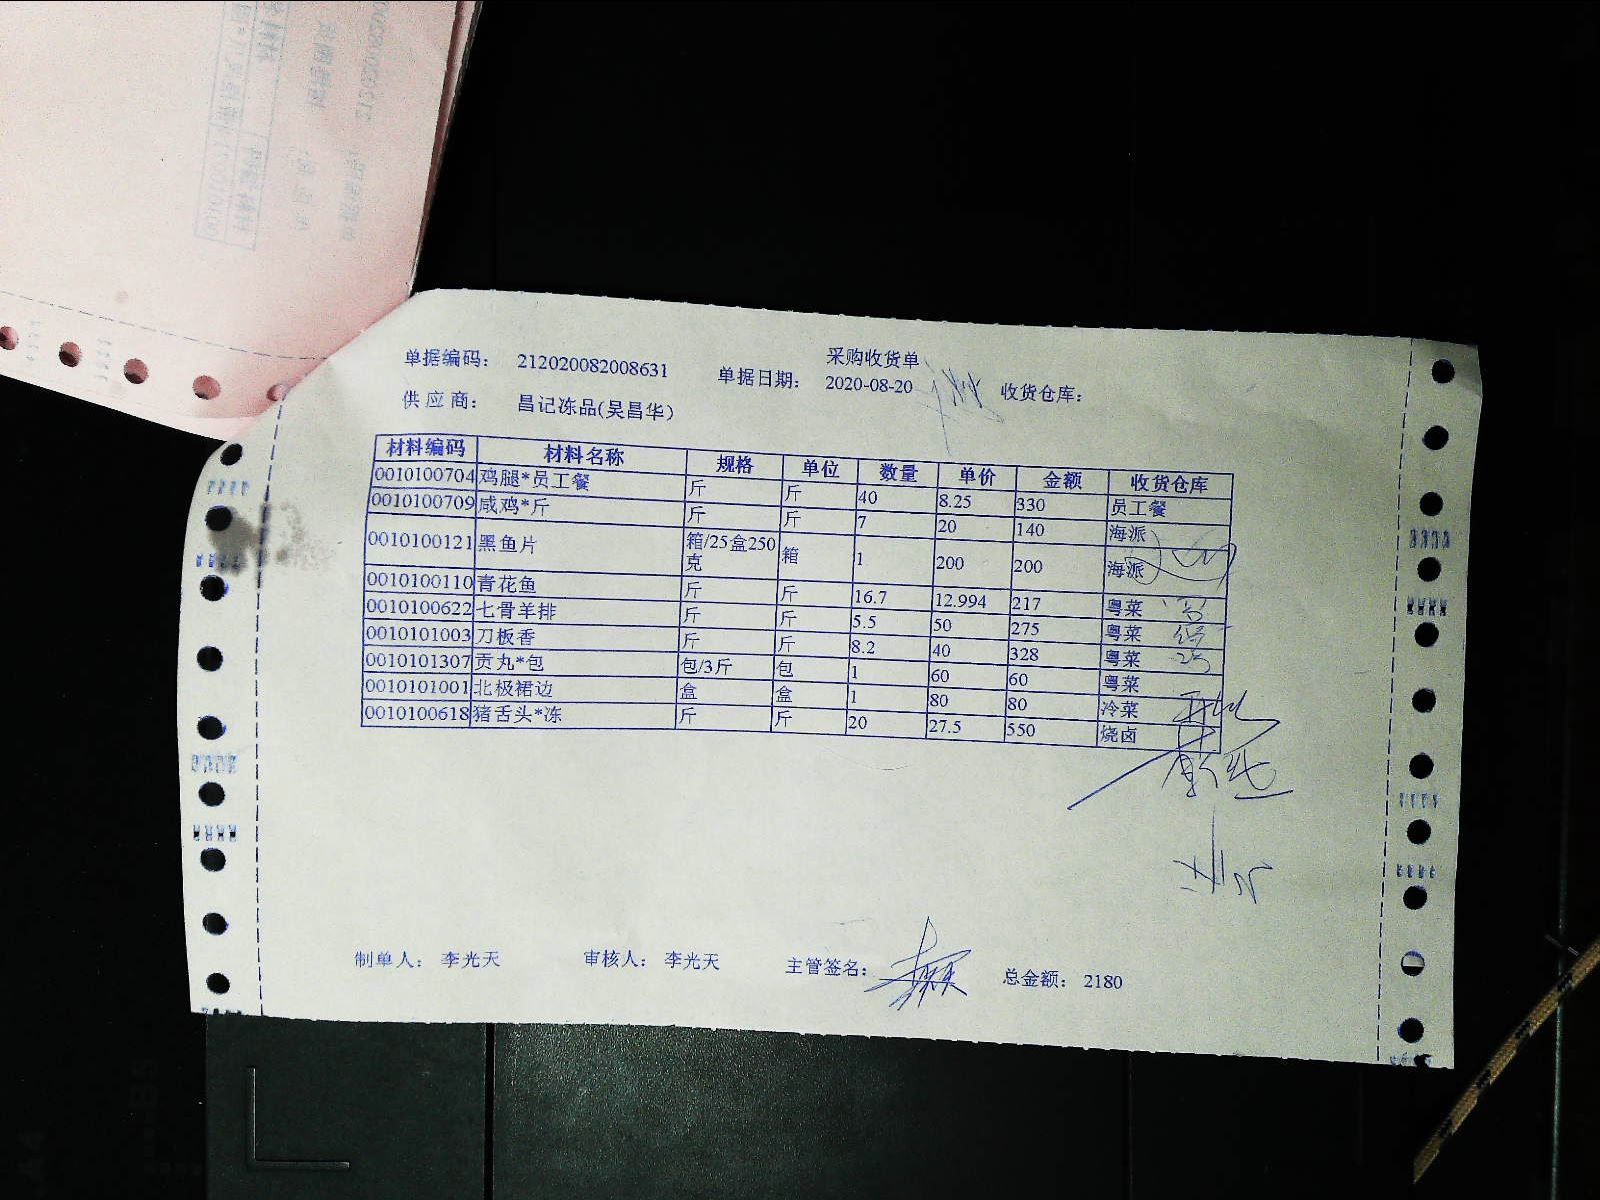 采购收货单
单据编码: 212020082008631 单据日期: 2020-08-20 收货仓库:
供应商: 昌记冻品(吴昌华)
材料编码 材料名称 规格 单位 数量 单价 金额 收货仓库
0010100704 鸡腿*员工餐 斤 斤 40 8.25 330 员工餐
0010100709 咸鸡*斤 斤 斤 7 20 140 海派
0010100121 黑鱼片 箱/25盒250克 箱 1 200 200 海派
0010100110 青花鱼 斤 斤 16.7 12.994 217 粤菜
0010100622 七骨羊排 斤 斤 5.5 50 275 粤菜
0010101003 刀板香 斤 斤 8.2 40 328 粤菜
0010101307 贡丸*包 包/3斤 包 1 60 60 粤菜
0010101001 北极裙边 盒 盒 1 80 80 冷菜
0010100618 猪舌头*冻 斤 斤 20 27.5 550 烧卤
制单人: 李光天 审核人: 李光天 主管签名: 总金额: 2180